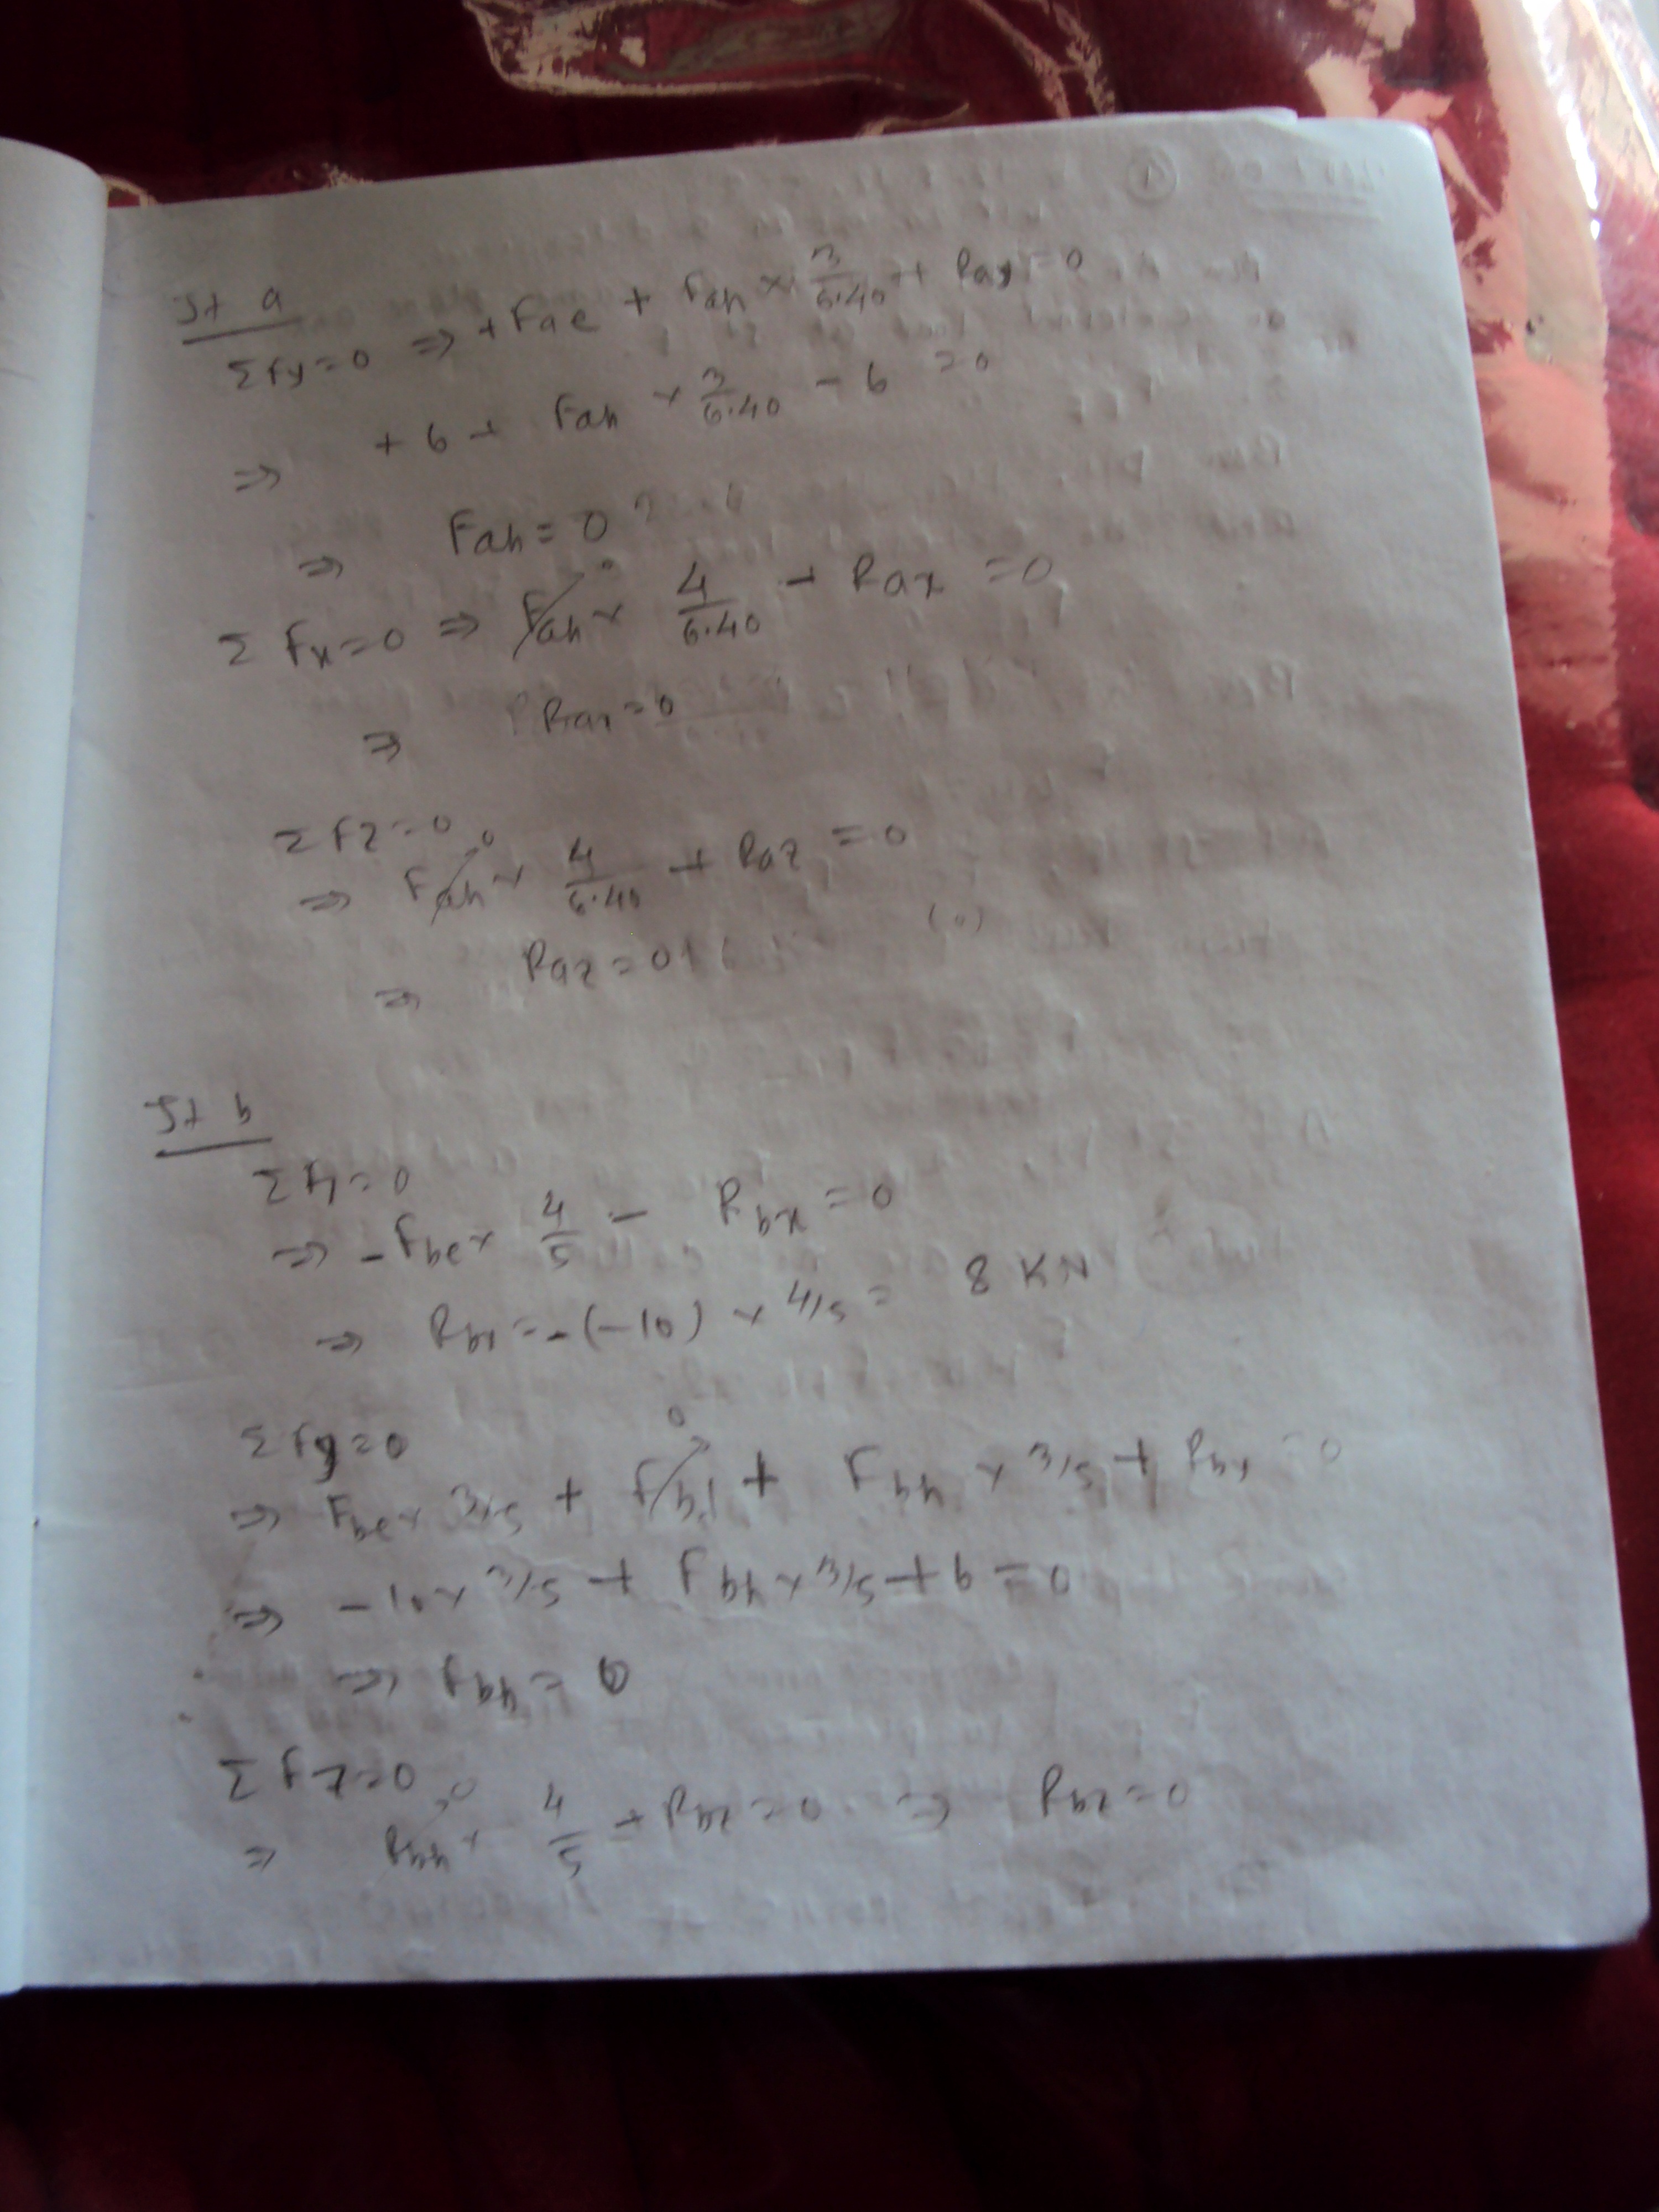 Jt a
Σfy=0 ⇒ +Fae + Fah × 3/6.40 + Ray = 0
⇒ +6 + Fah × 3/6.40 - 6 = 0
⇒ Fah = 0
Σ Fx=0 ⇒ Fah × 4/6.40 + Rax = 0
⇒ Rax = 0
Σ Fz=0
⇒ Fah × 4/6.40 + Raz = 0
⇒ Raz = 0
Jt b
Σ Fx=0
⇒ -Fbe × 4/5 - Rbx = 0
⇒ Rbx = -(-10) × 4/5 = 8 KN
Σ Fy=0
⇒ Fbe × 3/5 + Fbf + Fbh × 3/5 + Rby = 0
⇒ -10 × 3/5 + Fbh × 3/5 + 6 = 0
⇒ Fbh = 0
Σ Fz=0
⇒ Rbh × 4/5 + Rbz = 0 ⇒ Rbz = 0